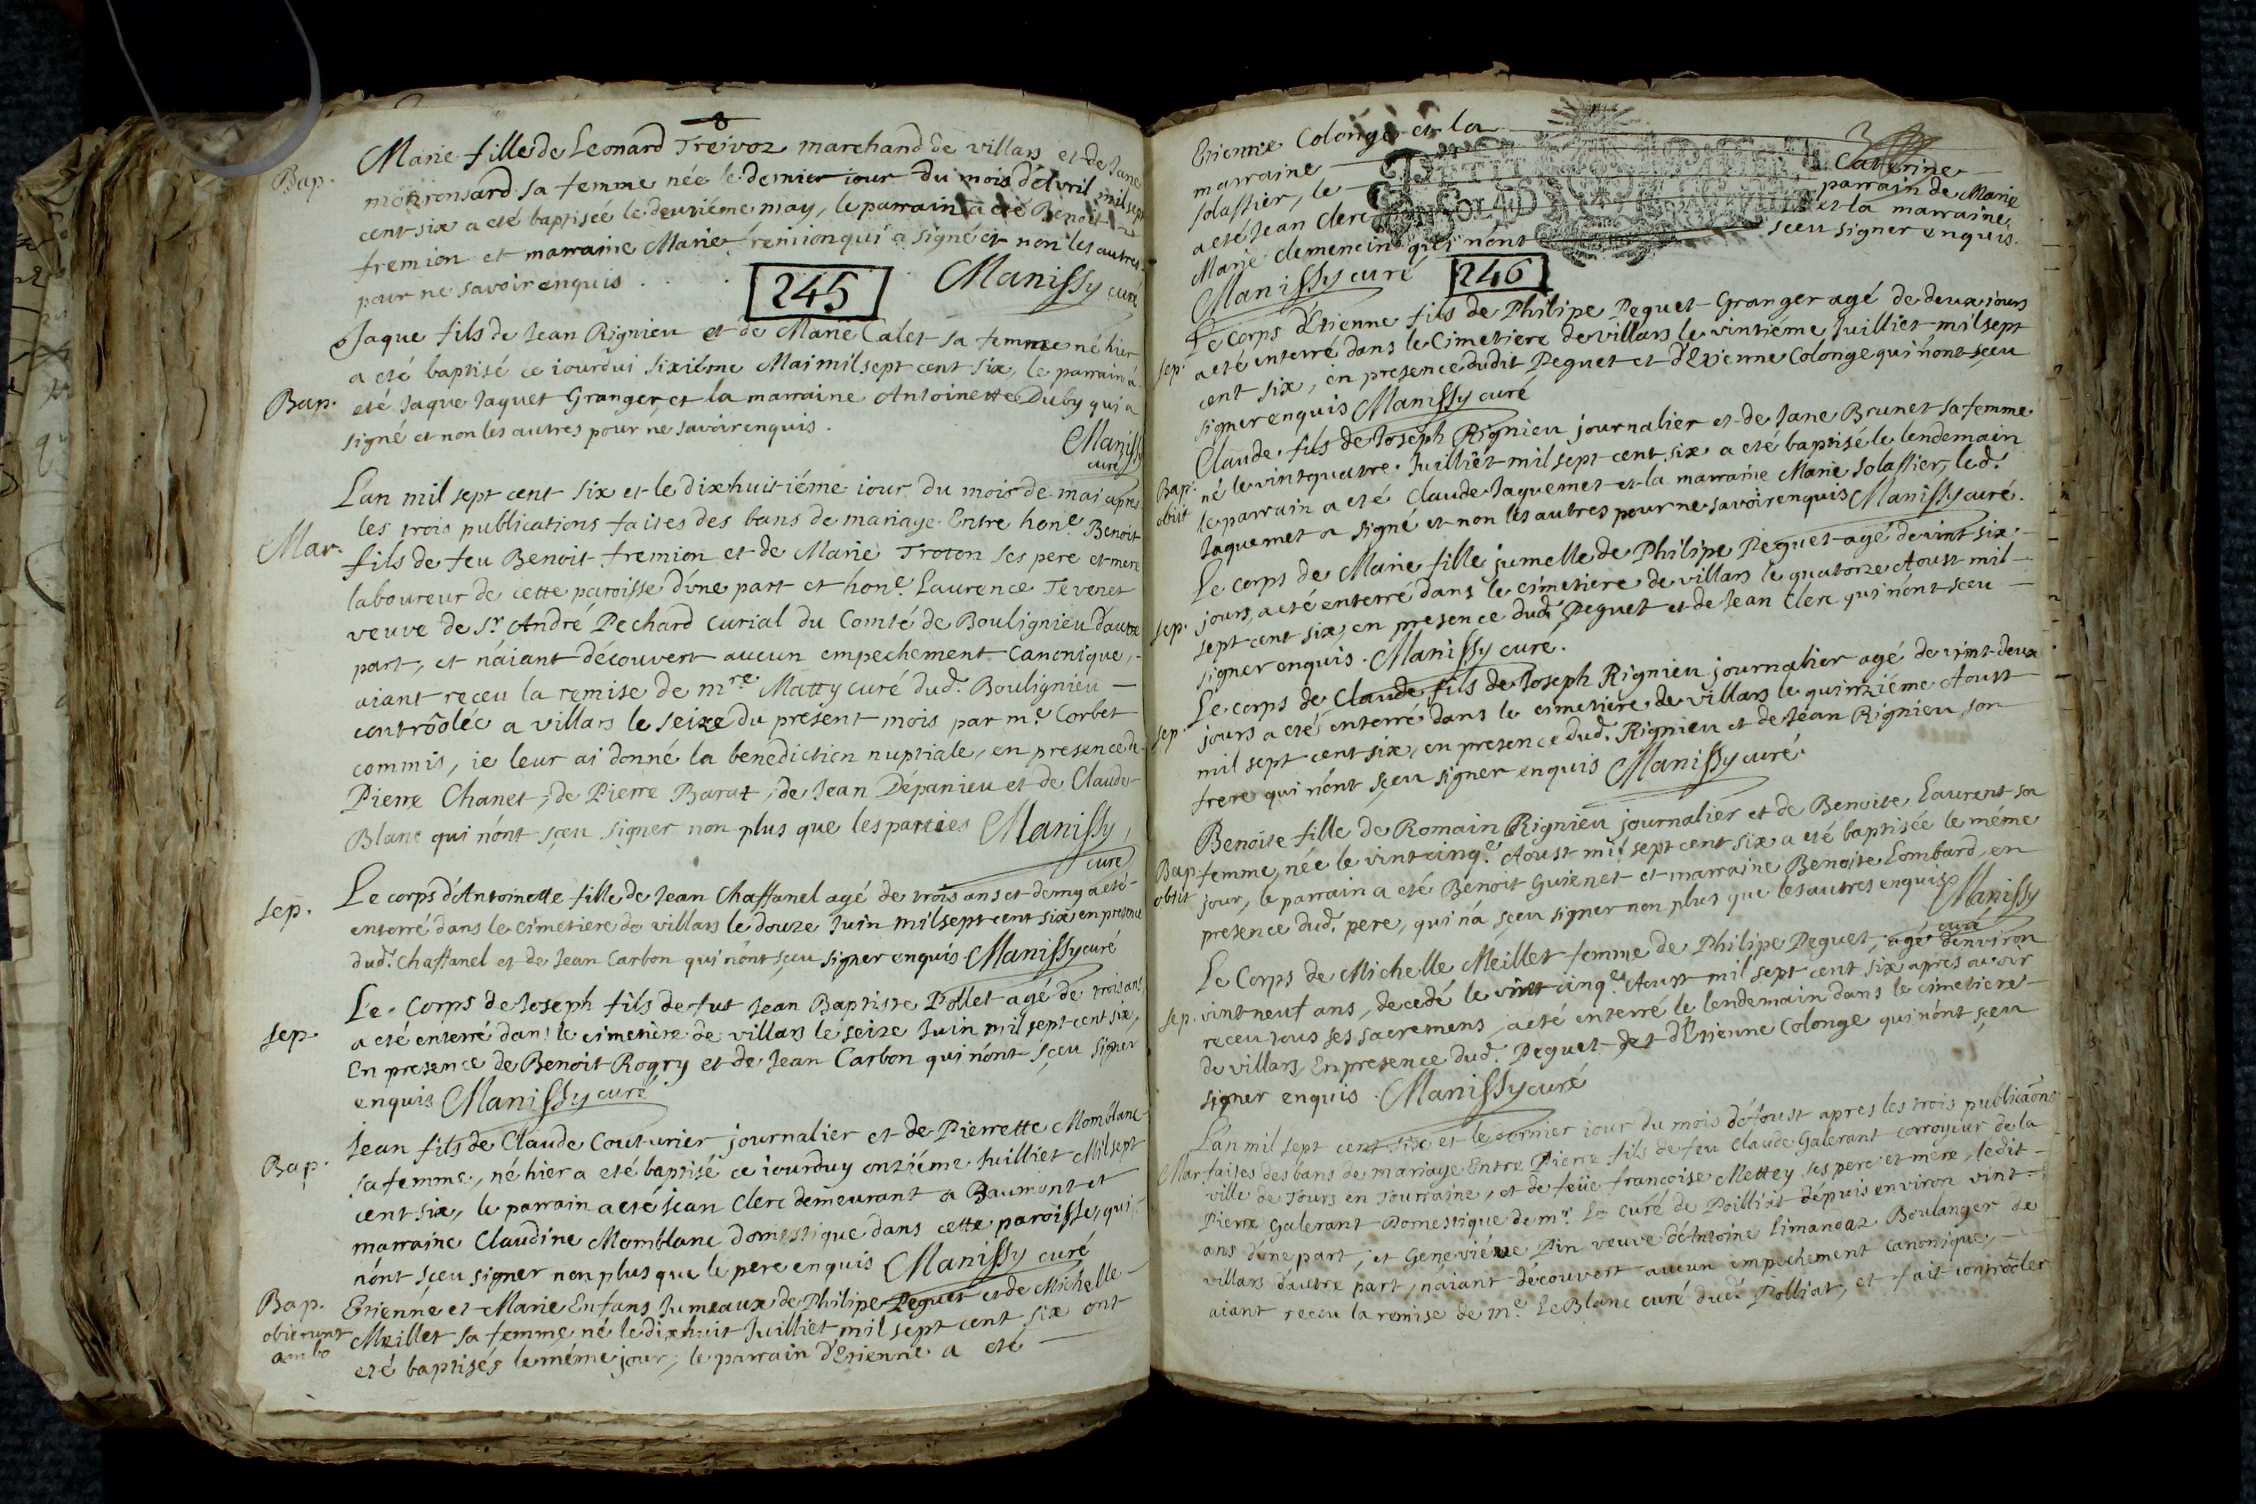 8
Marie fille de Leonard Treivoz marchand de villars et de Jane
Bap. monronsard sa femme née le dernier iour du mois d'Avril mil sept
cent six a eté baptisée le deuxiéme may, le parrain a eté Benoit
fremion et marraine Marie fremion qui a signé et non les autres
pour ne savoir enquis . . . Manissy curé
245
Jaque fils de Jean Rignieu et de Marie Calet sa femme né hier
a eté baptisé ce iourdui sixiéme Mai mil sept cent six, le parrain a
Bap. eté Jaque Jaquet Granger, et la marraine Antoinette Duby qui a
signé et non les autres pour ne savoir enquis .
Manissy
curé
Lan mil sept cent six et le dixhuitiéme iour du mois de mai apres
les trois publications faites des bans de mariage Entre hon.e Benoit
Mar. fils de feu Benoit fremion et de Marie Troton ses pere et mere
laboureur de cette paroisse d'une part et hon.e Laurence Tevenet
veuve de Sr. André Pechard curial du Comté de Boulignieu d'autre
part, et n'aiant découvert aucun empechement Canonique,
aiant receu la remise de m.re Matty curé dud. Boulignieu —
contrôlée a villars le seize du present mois par m.e Corbet
commis, ie leur ai donné la benediction nuptiale, en presence de
Pierre Chanet, de Pierre Barat, de Jean Dépanieu et de Claude
Blanc qui n'ont sçeu signer non plus que les parties Manissy,
curé
Le corps d'Antoinette fille de Jean Chaffanel agé de trois ans et demy a eté
sep. enterré dans le cimetiere de villars le douze Juin mil sept cent six en presence
dud. Chaffanel et de Jean Carbon qui n'ont sçeu signer enquis Manissy curé
Le Corps de Joseph fils de fut Jean Baptiste Pollet agé de trois ans
sep. a eté enterré dans le cimetiere de villars le seize Juin mil sept cent six,
En presence de Benoit Rogry et de Jean Carbon qui n'ont sçeu signer
enquis Manissy curé
Jean fils de Claude Couturier journalier et de Pierrette Momblanc
Bap. sa femme, né hier a eté baptisé ce iourduy onziéme Juilliet Mil sept
cent six, le parrain a eté Jean Clerc demeurant a Baumont et
marraine Claudine Momblanc domestique dans cette paroisse, qui
n'ont sçeu signer non plus que le pere enquis Manissy curé
Bap. Etienne et Marie Enfans Jumeaux de Philipe Peguet et de Michelle
obierunt Meillet sa femme né le dixhuit Juilliet mil sept cent six ont
ambo eté baptisés le méme jour, le parrain d'Etienne a eté —
Etienne Colonge et la
marraine — Caterine
solassier, le — parrain de Marie
a eté Jean Clerc et la marraine
Marie clemencin qui n'ont sceu signer enquis.
Manissy curé
246
Le Corps d'Etienne fils de Philipe Peguet Granger agé de deux jours
sep. a eté enterré dans le Cimetiere de villars le vintieme Juilliet mil sept
cent six, en presence dudit Peguet et d'Etienne Colonge qui n'ont sçeu
signer enquis Manissy curé
Claude fils de Joseph Rignieu journalier et de Jane Brunet sa femme
Bap. né le vintquatre Juilliet mil sept cent six a eté baptisé le lendemain
obiit le parrain a eté Claude Jaquemet et la marraine Marie Solassier, led.
Jaquemet a signé et non les autres pour ne savoir enquis Manissy curé.
Le corps de Marie fille jumelle de Philipe Peguet agé de vint six
jours, a eté enterré dans le cimetiere de villars le quatorze Aoust mil
sep. sept cent six, en presence dud. Peguet et de Jean Clerc qui n'ont sceu
signer enquis . Manissy curé.
Le Corps de Claude fils de Joseph Rignieu journalier agé de vint deux
sep. jours a eté enterré dans le cimetiere de villars le quinziéme Aoust
mil sept cent six, en presence dud. Rignieu et de Jean Rignieu son
frere qui n'ont sçeu signer enquis Manissy curé.
Benoite fille de Romain Rignieu journalier et de Benoite Laurent sa
Bap. femme, née le vintcinq.e Aoust mil sept cent six a eté baptisée le méme
obiit jour, le parrain a eté Benoit Guienet et marraine Benoite Lombard, en
presence dud. pere, qui n'a sçeu signer non plus que les autres enquis Manissy
curé
Le Corps de Michelle Meillet femme de Philipe Peguet, agé d'environ
sep. vintneuf ans, decedé le vint cinq.e Aoust mil sept cent six apres avoir
receu tous ses sacremens, a eté enterré le lendemain dans le cimetiere
de villars En presence dud. Peguet et d'Etienne Colonge qui n'ont sçeu
signer enquis . Manissy curé
L'an mil sept cent six et le dernier iour du mois d'Aoust apres les trois publicaõns
Mar. faites des bans de mariage Entre Pierre fils de feu Claude Galerant corroyeur de la
ville de Tours en Tourraine, et de feüe francoise Mettey ses pere et mere, ledit
Pierre Galerant Domestique de mr. Le curé de Poilliat dépuis environ vint
ans d'une part, et Geneviéve Pin veuve d'Antoine Limandaz Boulanger de
villars d'autre part, n'aiant découvert aucun empechement canonique,
aiant receu la remise de m.e LeBlanc curé dud. Polliat, et fait contrôler